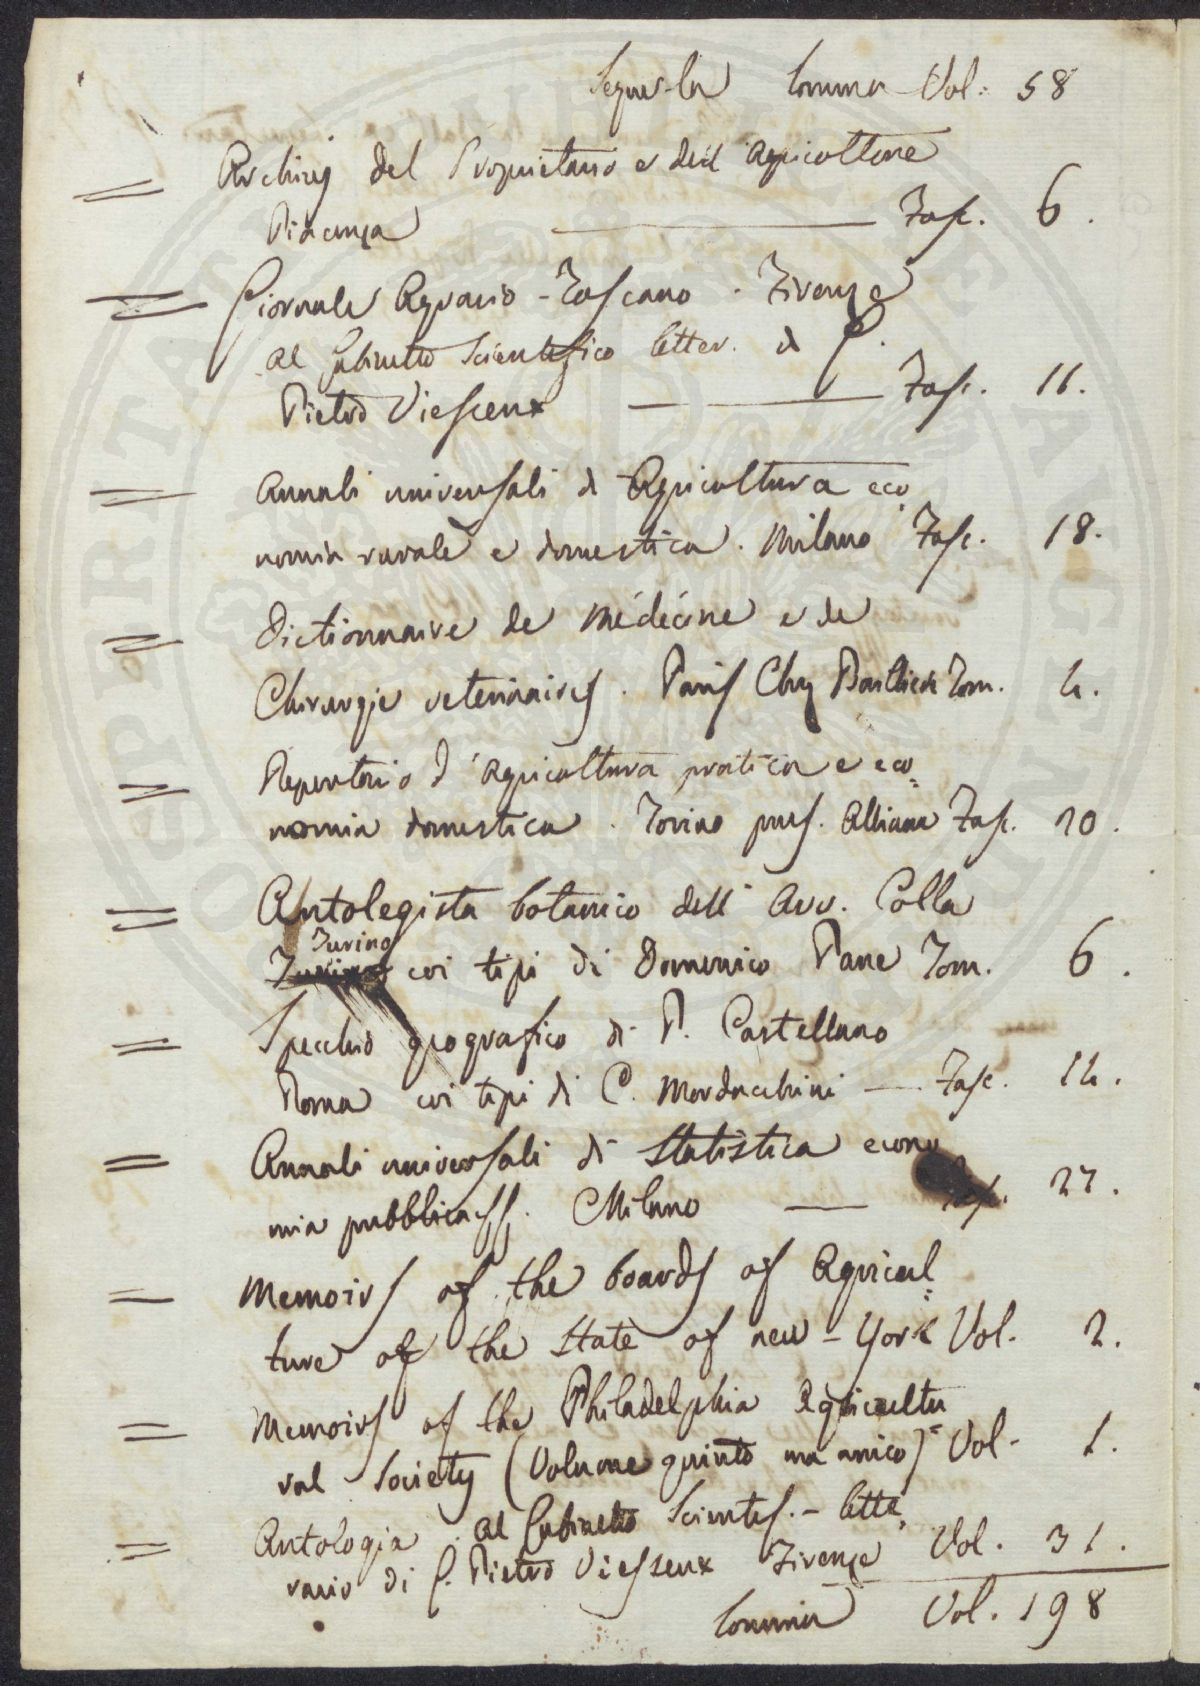 Segue la Somma Vol. 58
Archivj del Proprietario e dell'Agricoltore
Piacenza Fasc. 6.
Giornale Agrario-Toscano. Firenze
al Gabinetto Scientifico letter. di G.
Pietro Viesseux Fasc. 11.
Annali universali di Agricoltura eco
nomia rurale e domestica. Milano Fasc. 18.
Dictionnaire de Médécine e de
Chirurgie veterinaires. Paris Tom. 4.
Repertorio d'agricoltura pratica e eco=
nomia domestica. Torino Fasc. 20.
Antolegista botanico dell'Avv. Colla
Turino
coi tipi di Domenico Pane Tom. 6.
Specchio geografico di P. Castellano
Roma coi tipi di C. Mordacchini — Fasc. 14.
Annali universali di Statistica econo
mia pubblica Milano — Fasc. 27.
Memoirs of the boards of Agricul=
ture of the State of new-York Vol. 2.
Memoirs of the Philadelphia Agricultu=
ral Society (Volume quinto ma unico) Vol. 1.
Antologia. al Gabinetto Scientif.-lette
rario di G. Pietro Viesseux Firenze Vol. 31.
Somma Vol. 198